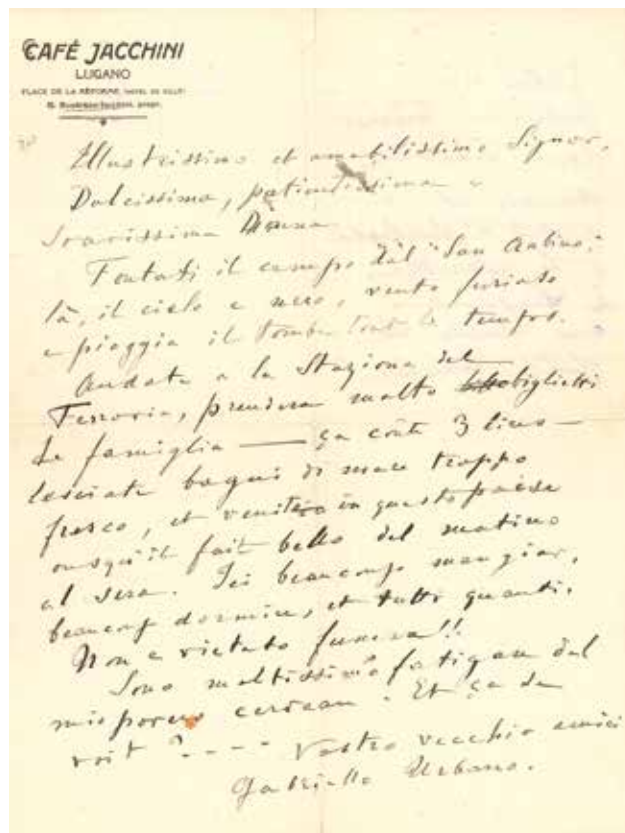 CAFÉ JACCHINI
LUGANO
PLACE DE LA RÉFORME, HOTEL DE VILLE
Illustrissimo et amabilissimo Signor,
Dolcissima, patientissima e
Soavissima Donna
il campo dal "San
là, il cielo e nero, vento furioso
e pioggia il tombe tout le tempo.
Andate a la Stazione del
Ferrovia, prendere molto biglietti
de famiglia — ça coûte 3 lires —
lasciate bagni di mare troppo
fresco, et venite in questo paese
ousqu'il fait bello del matino
al sera. Ici beaucoup mangiar,
beaucoup dormire, et tutti quanti.
Non e vietato fumera!!
Sono moltissimo fatigau del
mio povero cerveau. Et ça se
voit ? ---- Vostro vecchio amici
Gabriello Urbano.